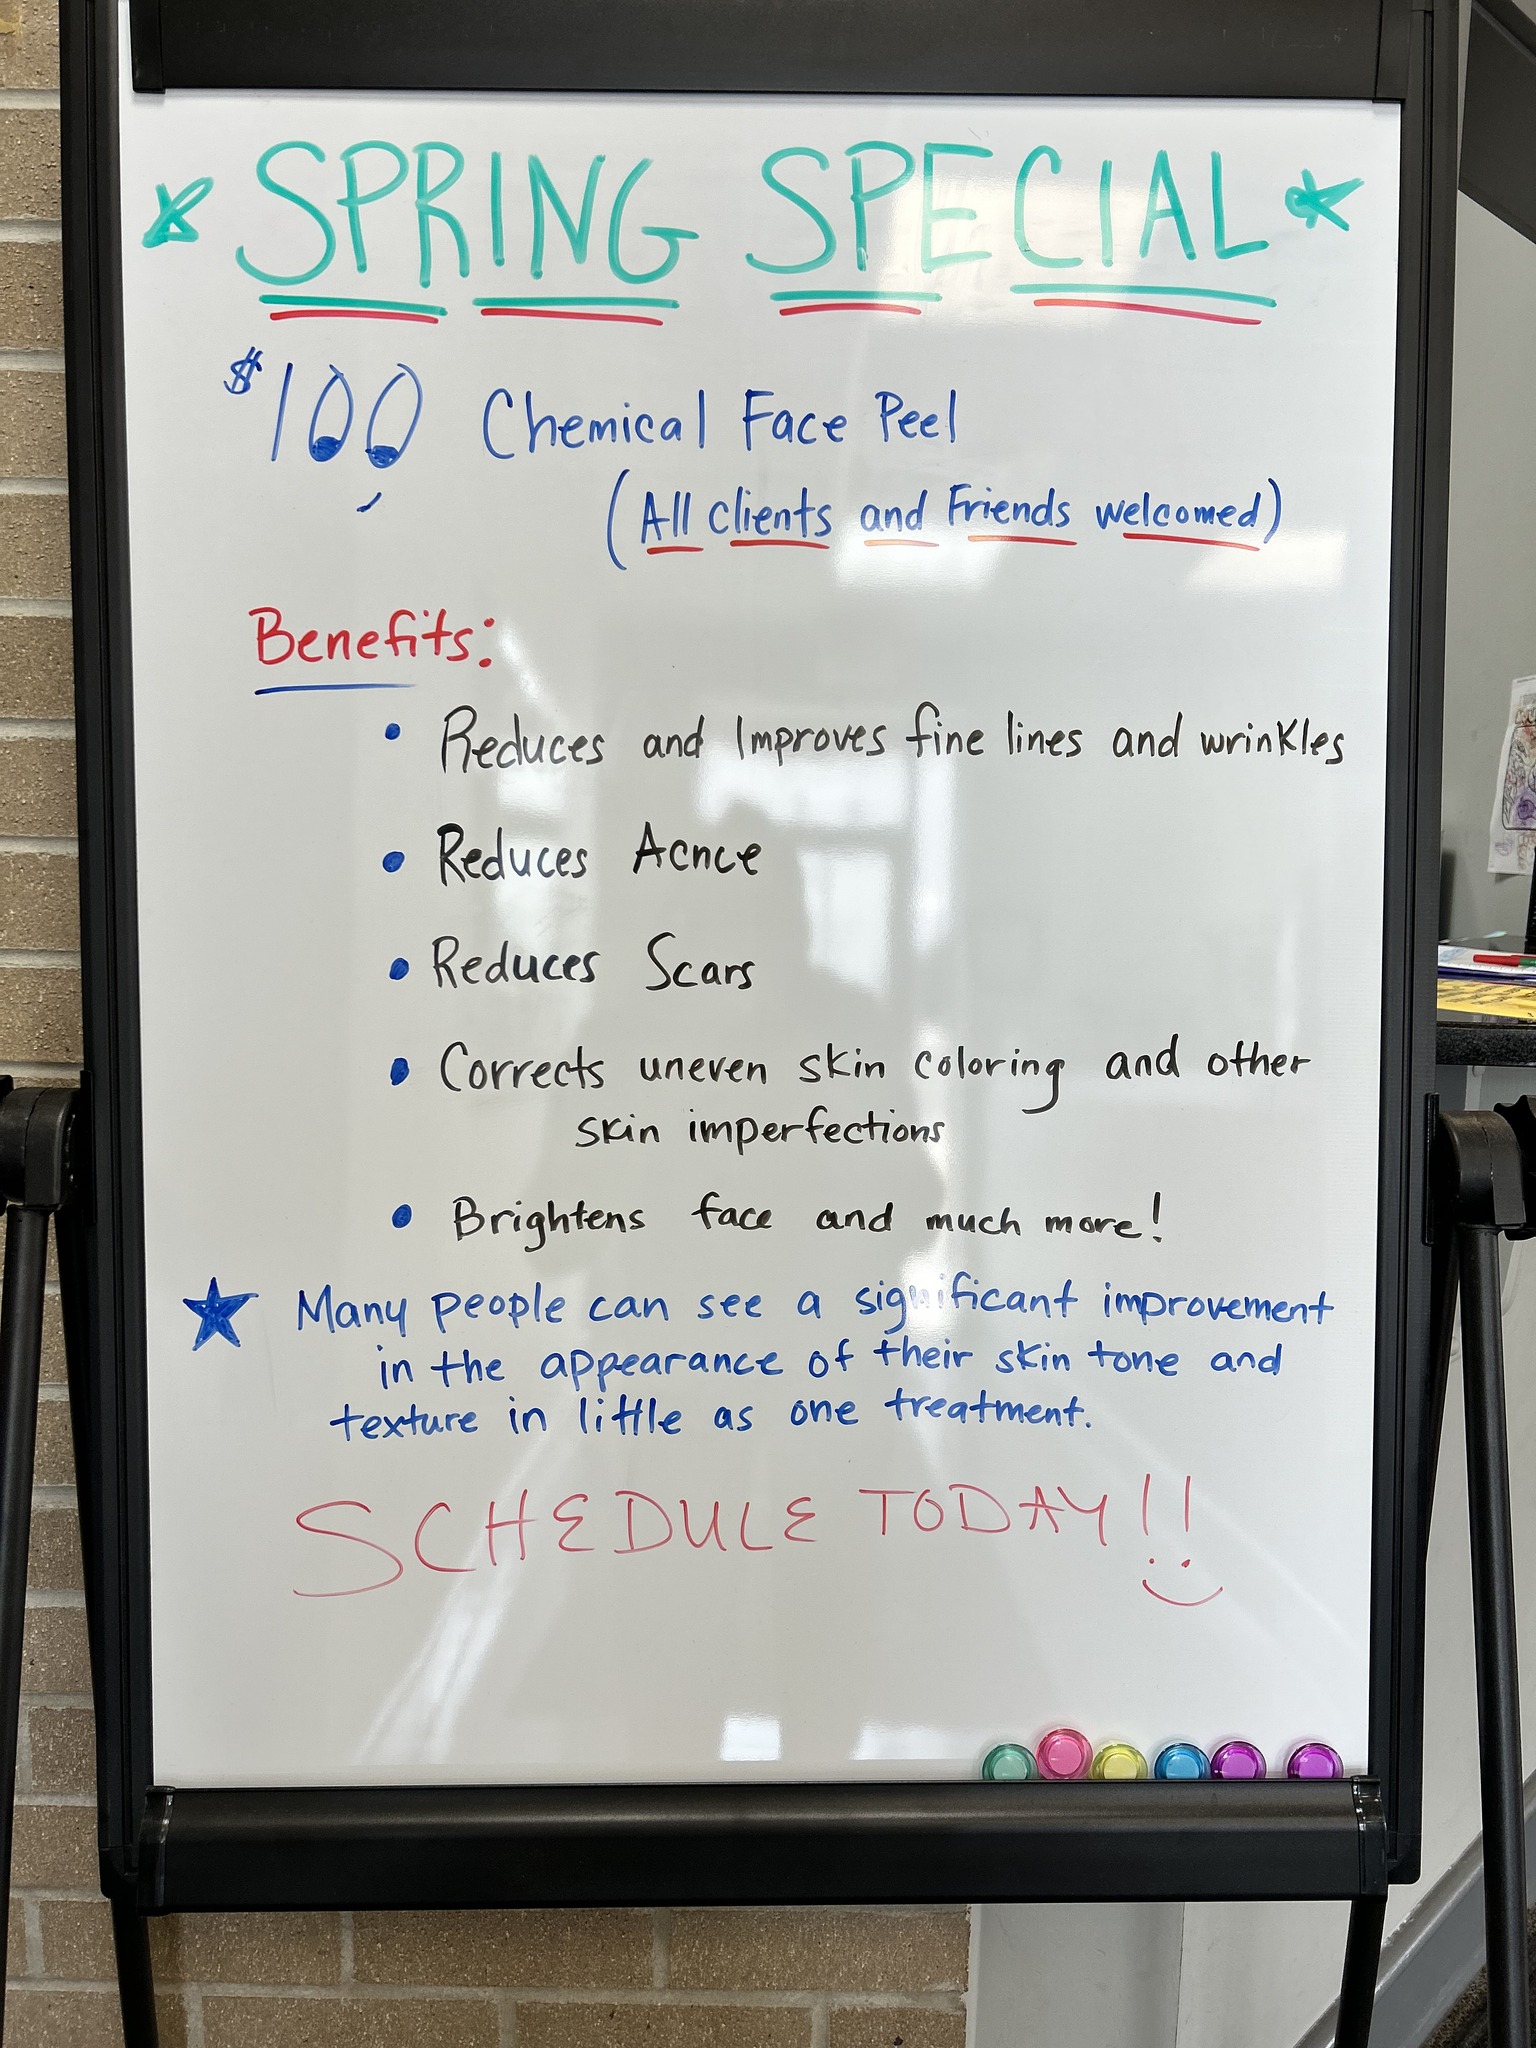 SPRING SPECIAL
$100 Chemical Face Peel
(All clients and Friends welcomed)
Benefits:
• Reduces and Improves fine lines and wrinkles
• Reduces Acnce
• Reduces Scars
• Corrects uneven skin coloring and other
skin imperfections
• Brightens face and much more!
Many people can see a significant improvement
in the appearance of their skin tone and
texture in little as one treatment.
SCHEDULE TODAY!!